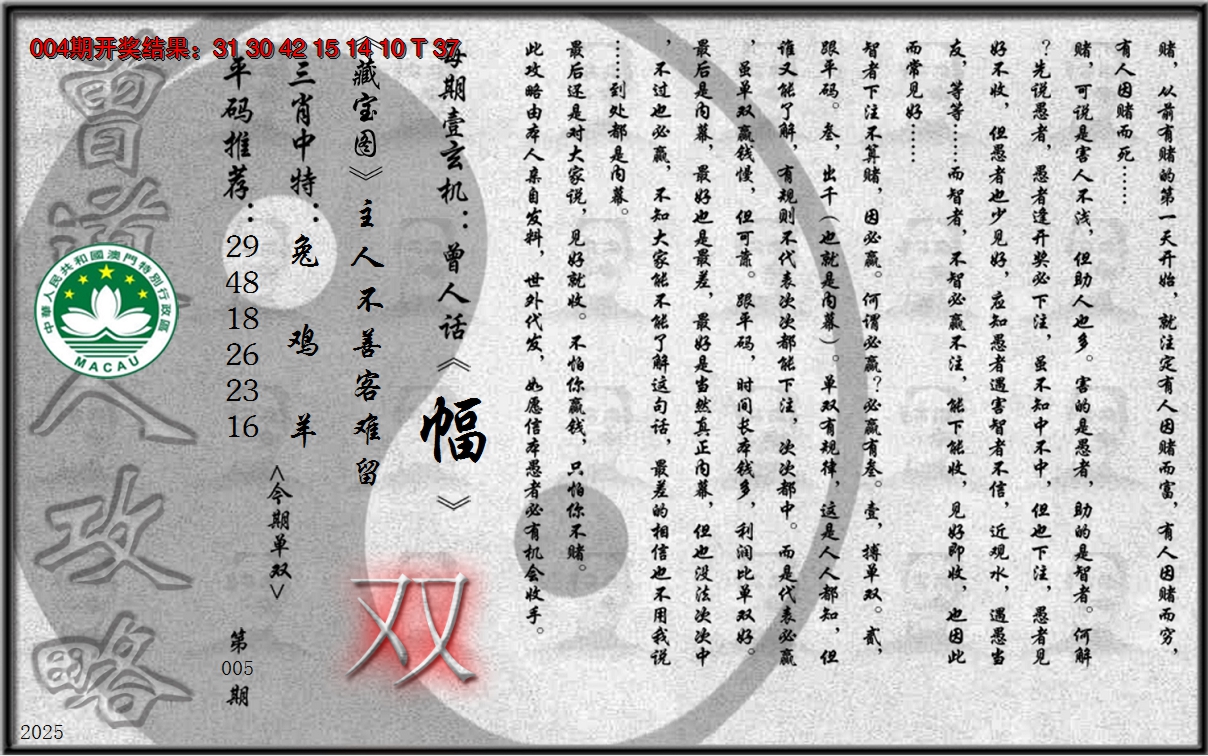 004期开奖结果：31 30 42 15 14 10 T 37
赌，从前有赌的第一天开始，就注定有人因赌而富，有人因赌而穷，
有人因赌而死……
赌，可说是害人不浅，但助人也多。害的是愚者，助的是智者。何解
？先说愚者，愚者逢开奖必下注，虽不知中不中，但也下注，愚者见
好不收，但愚者也少见好，应知愚者遇害智者不信，近观水，遇愚当
友，等等……而智者，不智必赢不注，能下能收，见好即收，也因此
而常见好……
智者下注不算赌，因必赢。何谓必赢？必赢有叁。壹，搏单双。贰，
跟平码。叁，出千（也就是内幕）。单双有规律，这是人人都知，但
谁又能了解，有规则不代表次次都能下注，次次都中。而是代表必赢
，虽单双赢钱慢，但可靠。跟平码，时间长本钱多，利润比单双好。
最后是内幕，最好也是最差，最好是当然真正内幕，但也没法次次中
，不过也必赢，不知大家能不能了解这句话，最差的相信也不用我说
……到处都是内幕。
最后还是对大家说，见好就收。不怕你赢钱，只怕你不赌。
此攻略由本人亲自发料，世外代发，如愿信本愚者必有机会收手。
每期壹玄机：曾人话《幅》
《藏宝图》主人不善客难留
双
三肖中特：兔 鸡 羊
<今期单双>
平码推荐：29 48 18 26 23 16
第005期
曾道人攻略
中華人民共和國澳門特別行政區
MACAU
2025